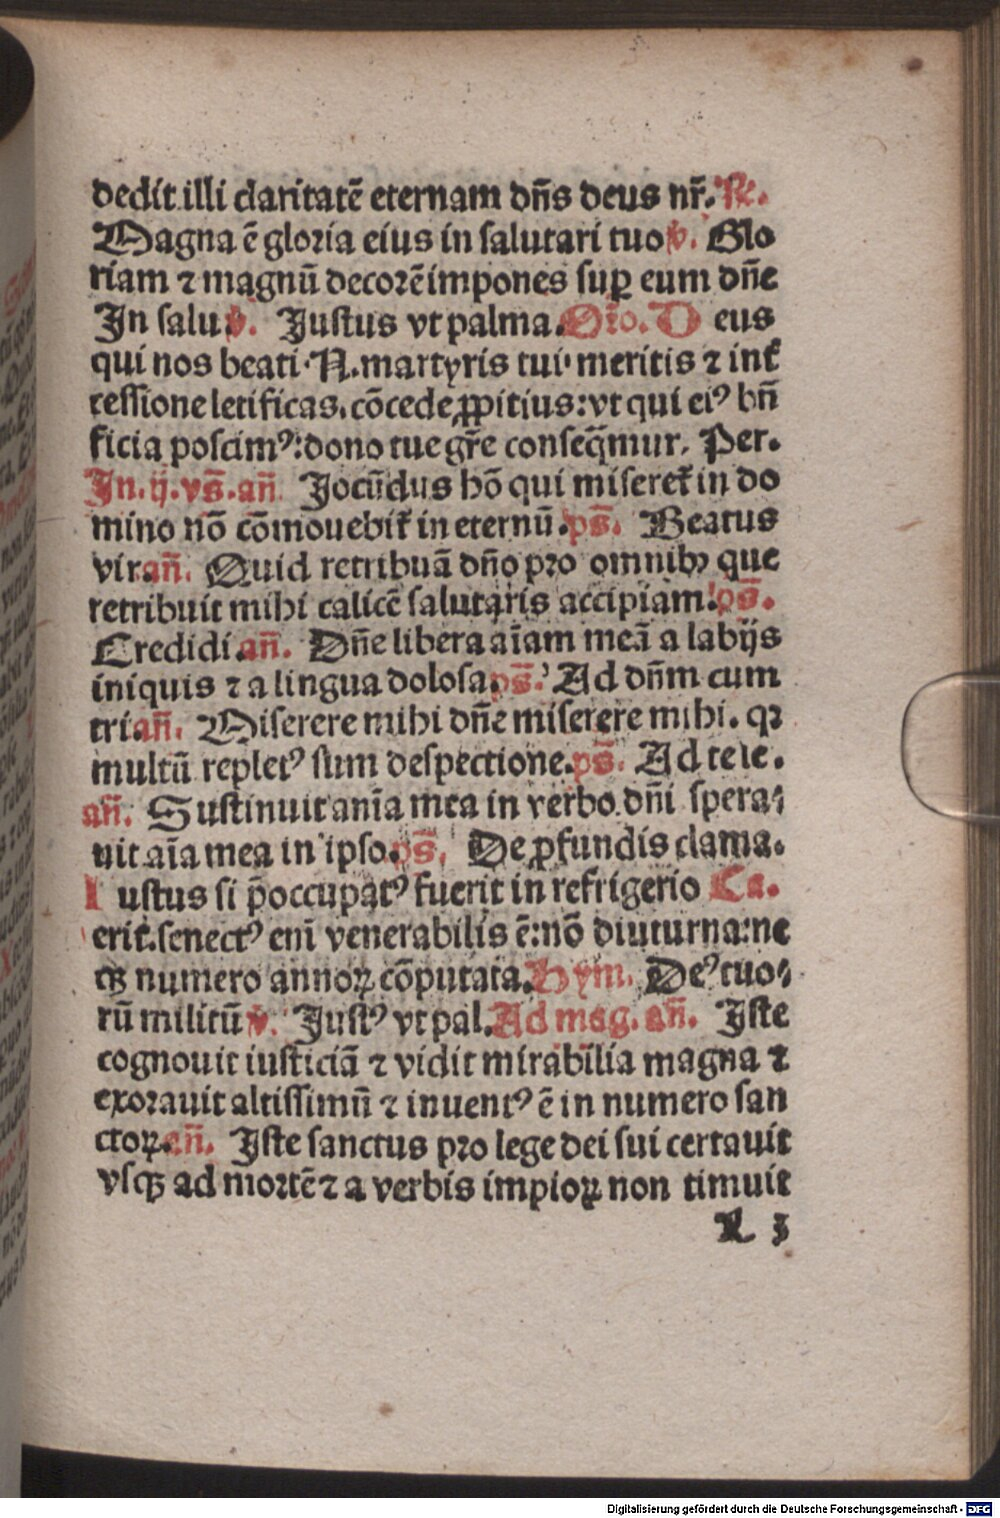 dedit illi claritatē eternam dn̄s deus nr̄. R.
Magna ē gloria eius in salutari tuo v̄. Glo
riam ⁊ magnū decorē impones suꝑ eum dn̄e
In salu. v̄. Justus vt palma. Or̄o. D eus
qui nos beati .N. martyris tui meritis ⁊ int̄
cessione letificas. cōcede ꝓpitius: vt qui eiꝰ bn̄
ficia poscimꝰ: dono tue gr̄e conseq̄mur. Per.
In .ij. vs̄. an̄ Jocūdus hō qui miseret̄ in do
mino nō cōmouebit̄ in eternū. ps̄. Beatus
vir. an̄. Quid retribuā dn̄o pro omnibꝫ que
retribuit mihi calicē salutaris accipiam. ps̄.
Credidi. an̄. Dn̄e libera aīam meā a labijs
iniquis ⁊ a lingua dolosa. ps̄. Ad dn̄m cum
tri. an̄. Miserere mihi dn̄e miserere mihi. qꝛ
multū repletꝰ sum despectione. ps̄. Ad te le.
an̄. Sustinuit anīa mea in verbo dn̄i spera⸗
uit aīa mea in ipso. ps̄. De ꝓfundis clama.
I ustus si p̄occupatꝰ fuerit in refrigerio Ca.
erit. senectꝰ enī venerabilis ē: nō diuturna: ne
qꝫ numero annoꝝ cōputata. Hym. Deꝰ tuo⸗
rū militū v̄. Justꝰ vt pal. Ad mag. an̄. Iste
cognouit iusticiā ⁊ vidit mirabilia magna ⁊
exorauit altissimū ⁊ inuentꝰ ē in numero san
ctoꝝ. an̄. Iste sanctus pro lege dei sui certauit
vsqꝫ ad mortē ⁊ a verbis impioꝝ non timuit
R 3
Digitalisierung gefördert durch die Deutsche Forschungsgemeinschaft - DFG